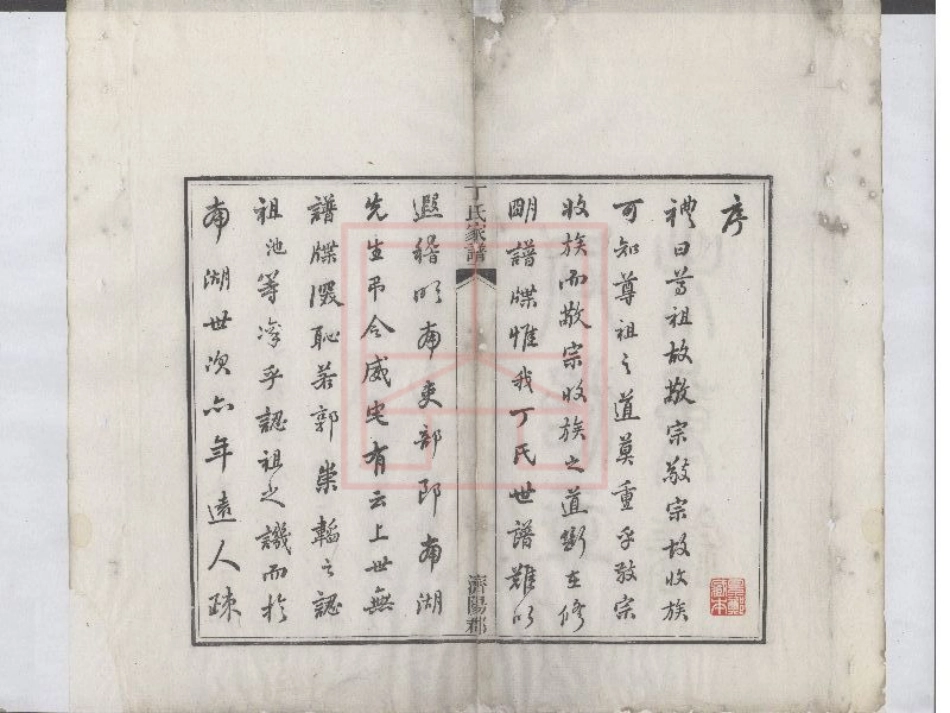 序
禮曰尊祖故敬宗敬宗故收族
可知尊祖之道莫重乎敬宗
收族而敬宗收族之道斷在修
明譜牒惟我丁氏世譜難以
丁氏家譜
濟陽郡
遐稽明南吏部郎南湖
先生弔令威宅有云上世無
譜牒濅恥若郭崇韜之認
祖池等淳乎認祖之譏而於
南湖世次亦年遠人疎